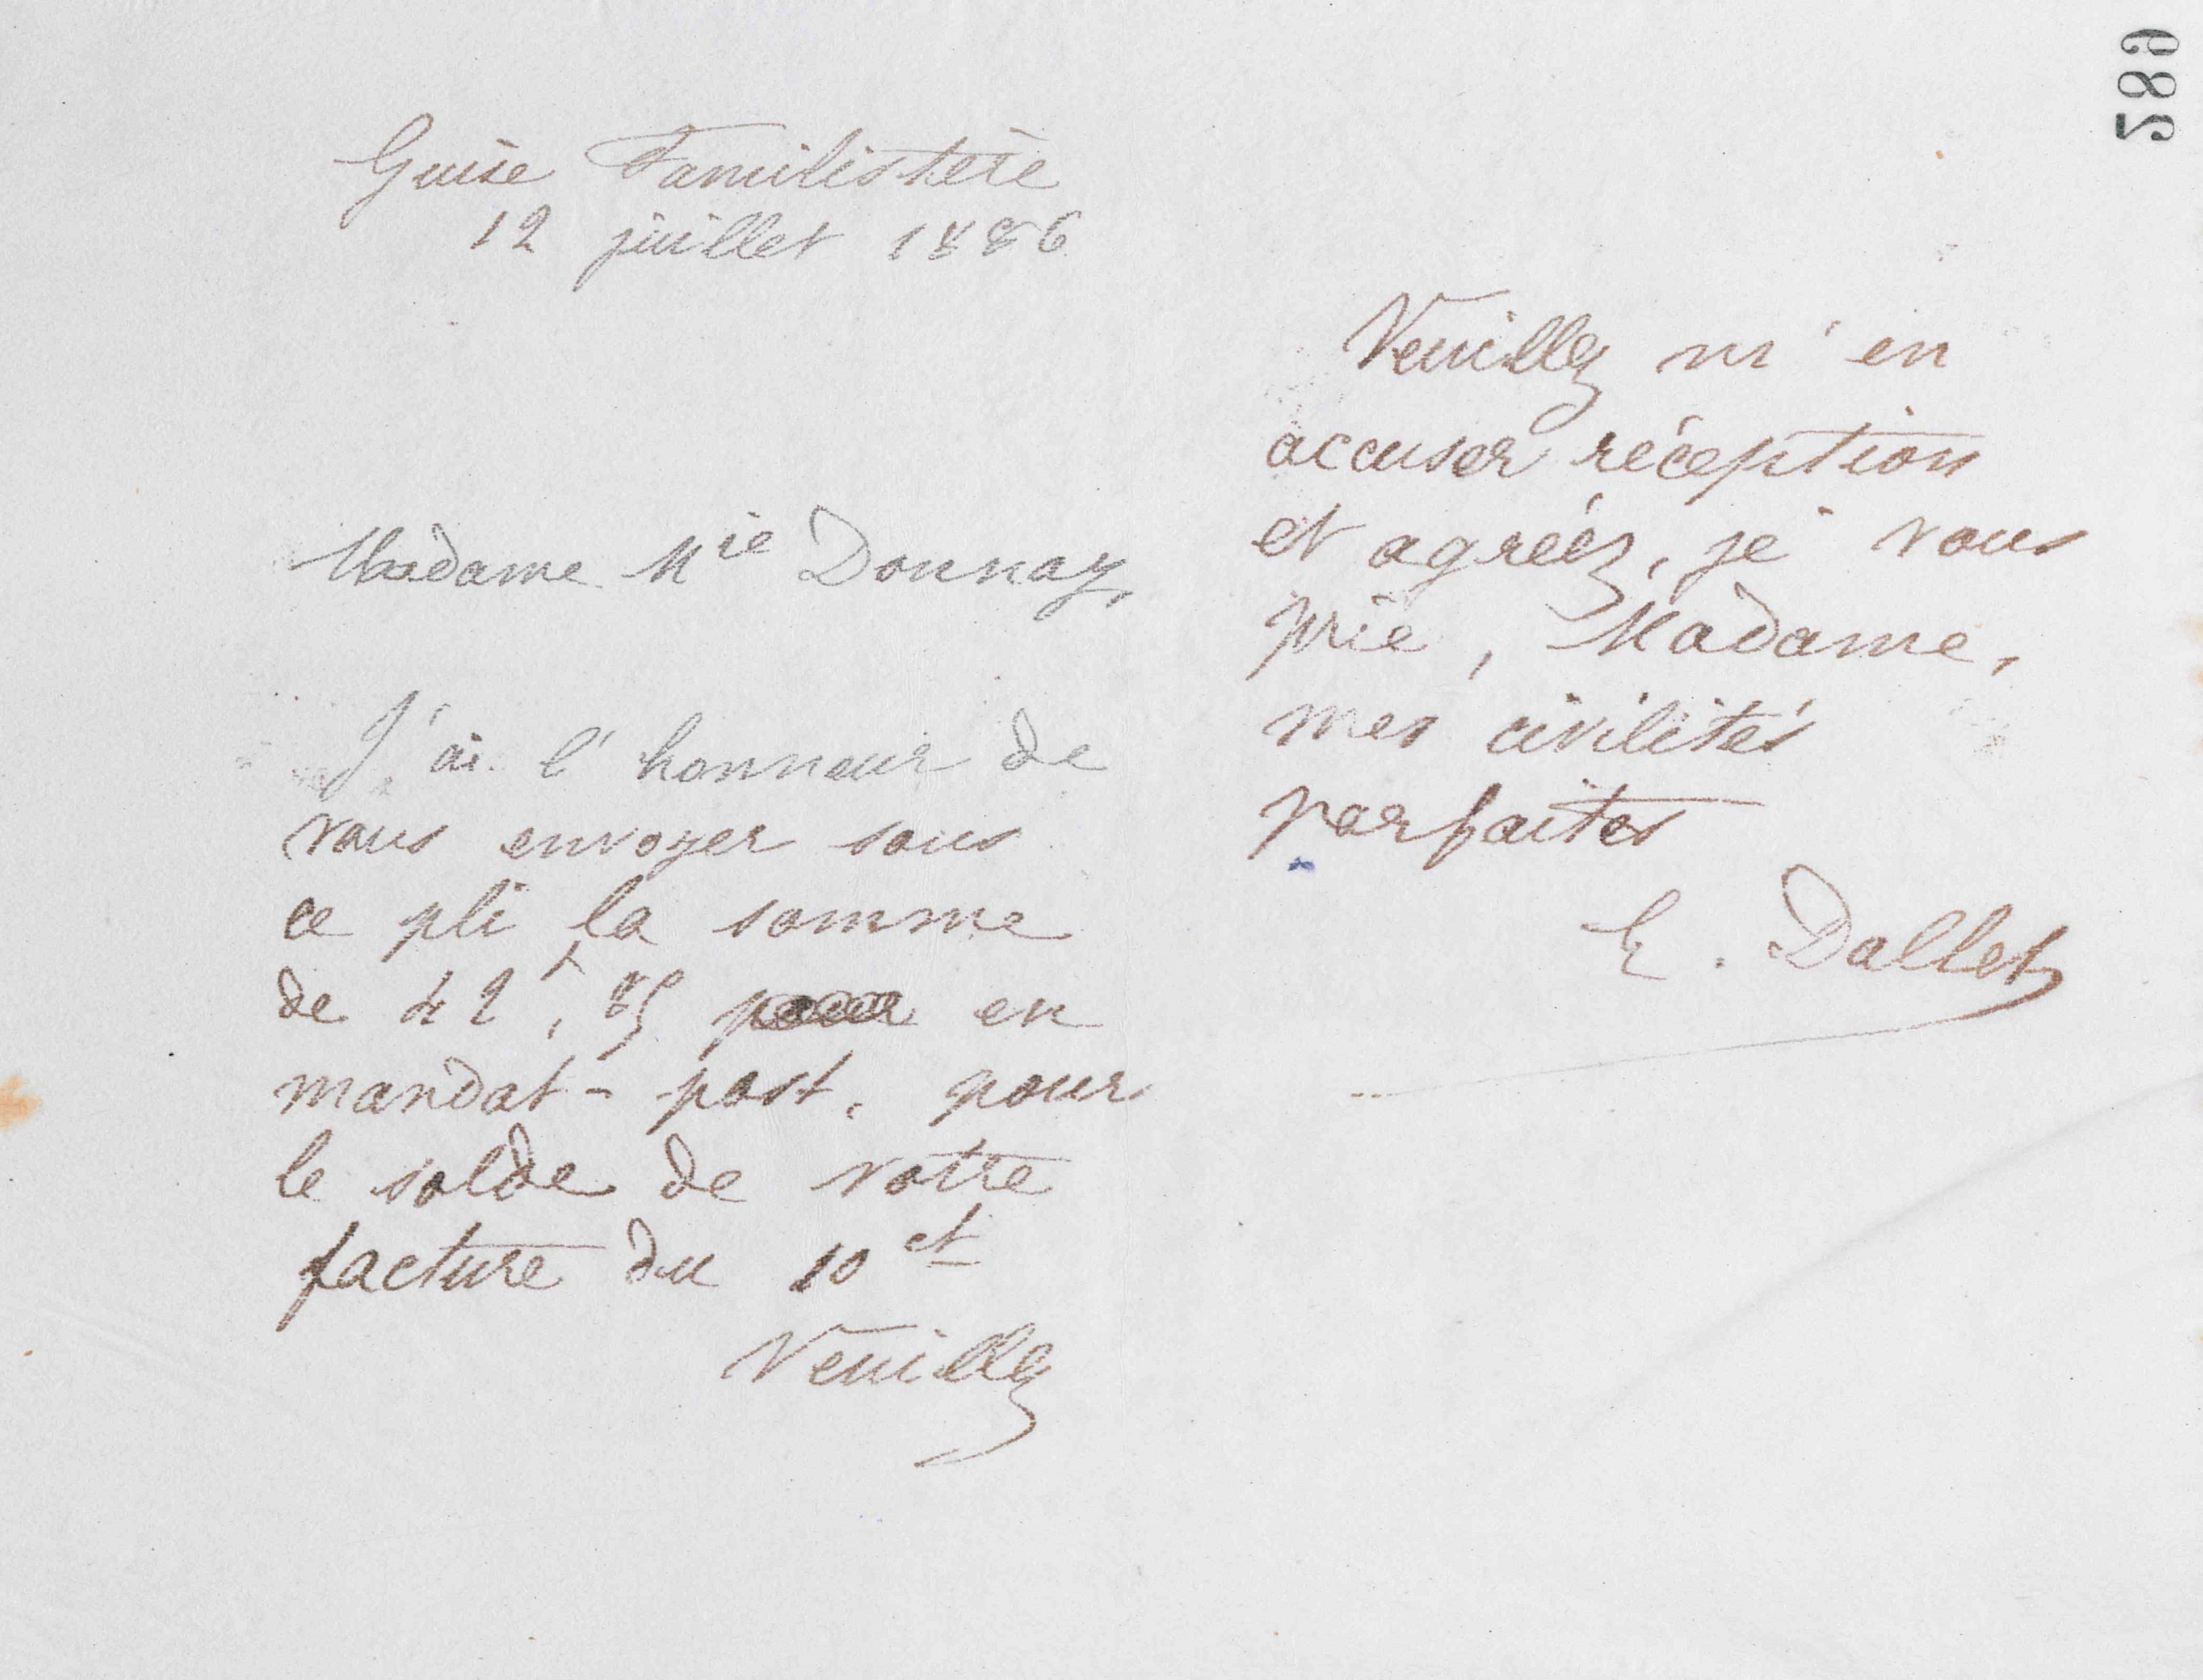 589
Guise Familistère
12 juillet 1886
Madame Mie Donnay,
J'ai l'honneur de
vous envoyer sous
ce pli la somme
de 42f,85 pour en
mandat-post. pour
le solde de votre
facture du 10 ct
Veuillez
Veuillez m'en
accuser réception
et agréez, je vous
prie, Madame,
mes civilités
parfaites
E. Dallet